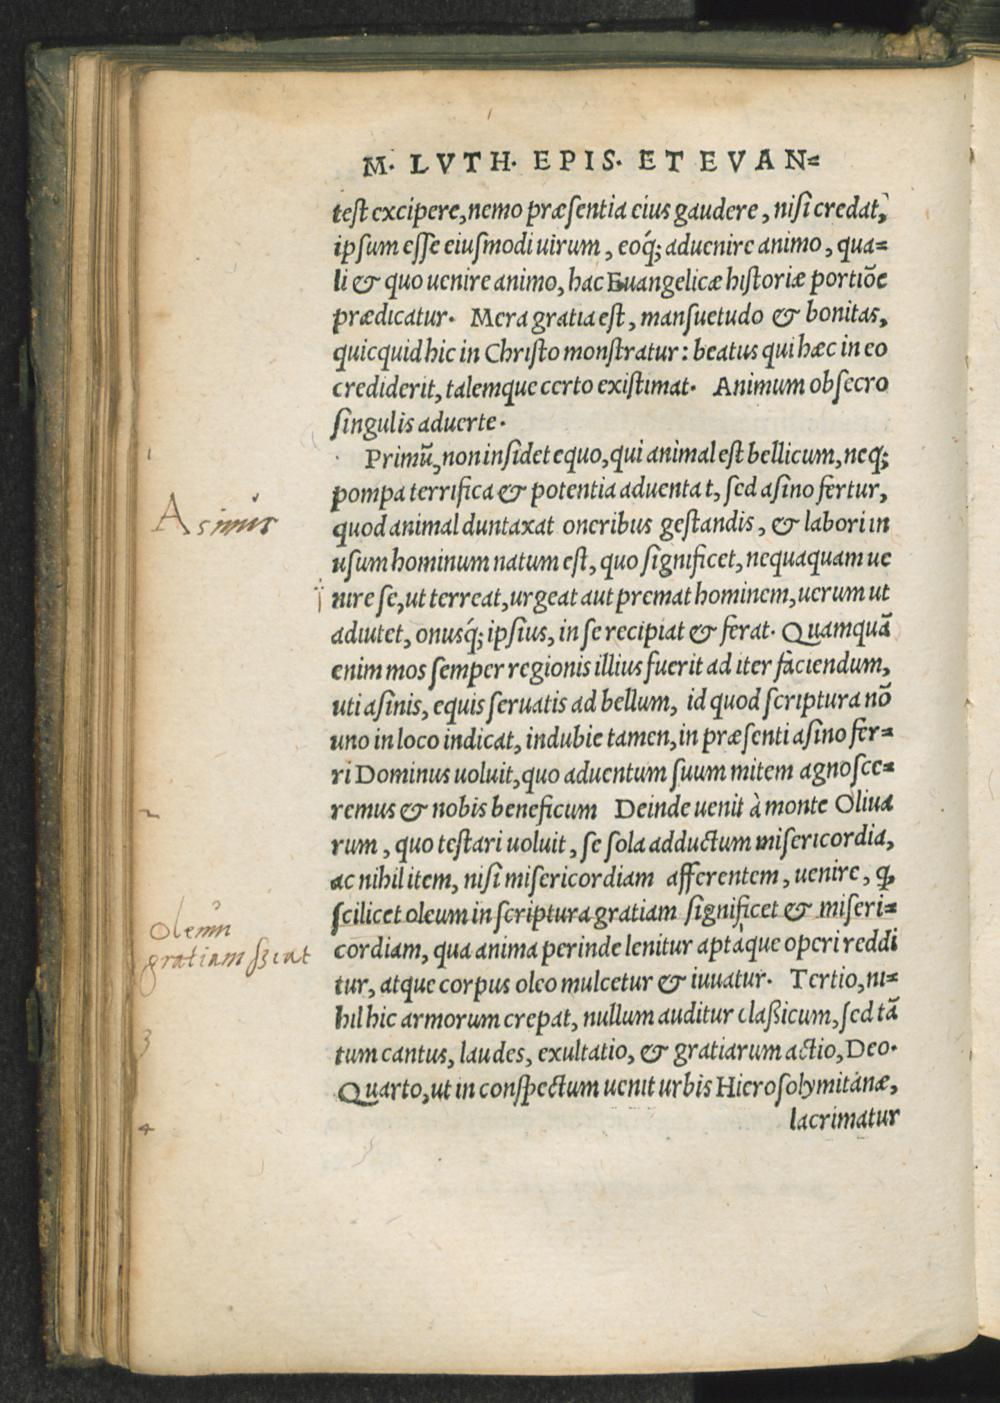 M. LVTH. EPIS. ET EVAN=
test excipere, nemo præsentia eius gaudere, nisi credat,
ipsum esse eiusmodi uirum, eoq́; aduenire animo, qua=
li & quo uenire animo, hac Euangelicæ historiæ portiõe
prædicatur. Mera gratia est, mansuetudo & bonitas,
quicquid hic in Christo monstratur: beatus qui hæc in eo
crediderit, talemque certo existimat. Animum obsecro
singulis aduerte.
Primũ, non insidet equo, qui animal est bellicum, neq;
pompa terrifica & potentia aduentat, sed asino fertur,
Asinus
quod animal duntaxat oneribus gestandis, & labori in
usum hominum natum est, quo significet, nequaquam ue
nire se, ut terreat, urgeat aut premat hominem, uerum ut
adiutet, onusq́; ipsius, in se recipiat & ferat. Quamquã
enim mos semper regionis illius fuerit ad iter faciendum,
uti asinis, equis seruatis ad bellum, id quod scriptura nõ
uno in loco indicat, indubie tamen, in præsenti asino fer=
ri Dominus uoluit, quo aduentum suum mitem agnosce=
remus & nobis beneficum Deinde uenit à monte Oliua
2
rum, quo testari uoluit, se sola adductum misericordia,
ac nihil item, nisi misericordiam afferentem, uenire, q,
scilicet oleum in scriptura gratiam significet & miseri=
Oleum
gratiam
cordiam, qua anima perinde lenitur aptáque operi reddi
tur, atque corpus oleo mulcetur & iuuatur. Tertio, ni=
hil hic armorum crepat, nullum auditur claßicum, sed tã
3
tum cantus, laudes, exultatio, & gratiarum actio, Deo.
Quarto, ut in conspectum uenit urbis Hierosolymitanæ,
4
lacrimatur